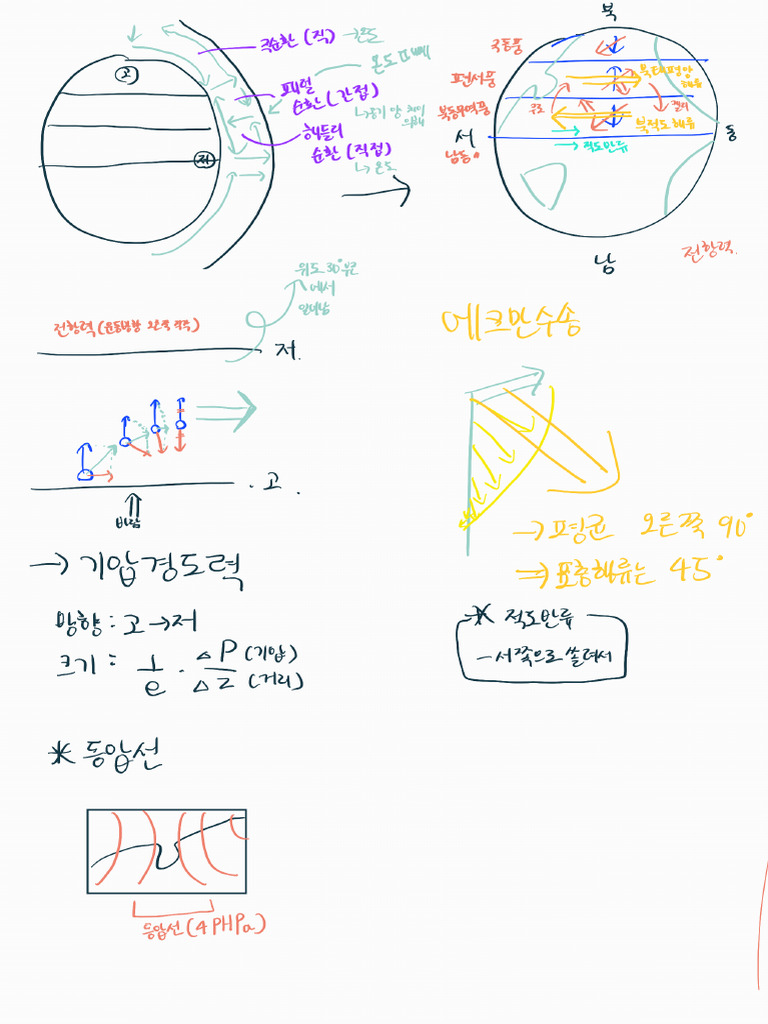 고
저
극순환 (직)
온도
온도 때매
페렐
순환 (간접)
해들리
순환 (직접)
↳ 온도
북
극동풍
편서풍
북동무역풍
서
남동
북태평양
해류
쿠로
북적도 해류
→ 적도반류
동
남
전향력
위도 30°부근
에서
일어남
전향력 (운동방향 오른쪽 직각)
저.
고.
바람
→ 기압경도력
방향 : 고→저
크기 : 1/e · ΔP (기압) / ΔZ (거리)
* 등압선
등압선 (4PHPa)
에크만수송
→ 평균 오른쪽 90°
⇒ 표층해류는 45°
* 적도반류
- 서쪽으로 쏠려서